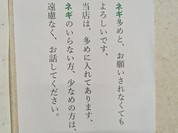 ネギ多めと、お願いされなくても
よろしいです。
当店は、多めに入れてあります。
ネギのいらない方、少なめの方は、
遠慮なく、お話してください。